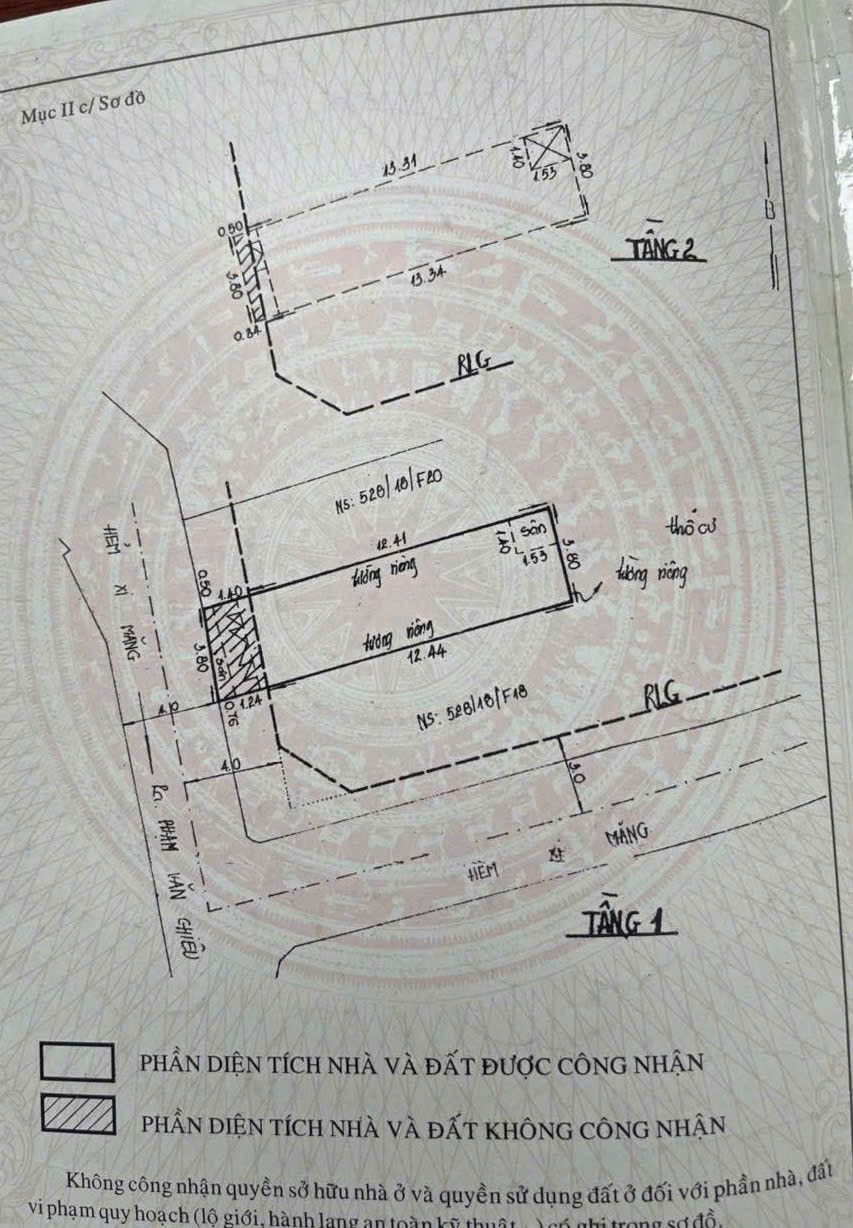 Mục II c/ Sơ đồ
13.31
1.40
1.53
3.80
0.50
3.80
B
TẦNG 2
13.34
0.84
RLG
NS: 528/18/F20
HẺM XI MĂNG
12.41
sân
1.40
1.53
3.80
thổ cư
tường riêng
tường riêng
0.50
1.40
3.80
sân
tường riêng
12.44
0.76
1.24
NS: 528/18/F18
RLG
4.0
4.0
3.0
PHẠM VĂN CHIÊU
HẺM XI MĂNG
TẦNG 1
PHẦN DIỆN TÍCH NHÀ VÀ ĐẤT ĐƯỢC CÔNG NHẬN
PHẦN DIỆN TÍCH NHÀ VÀ ĐẤT KHÔNG CÔNG NHẬN
Không công nhận quyền sở hữu nhà ở và quyền sử dụng đất ở đối với phần nhà, đất
vi phạm quy hoạch (lộ giới, hành lang an toàn kỹ thuật...) có ghi trong sơ đồ.